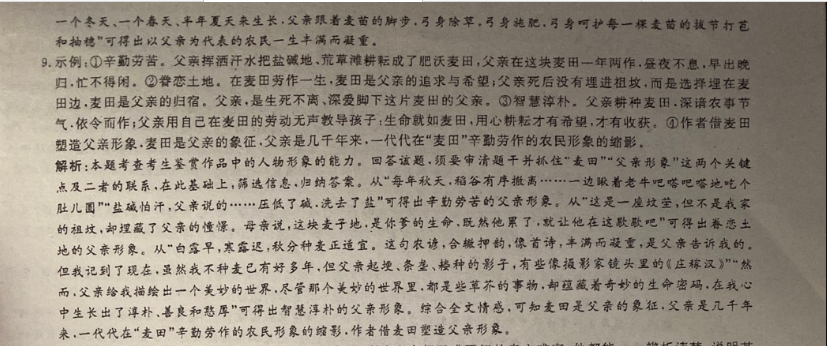 一个冬天、一个春天、半年夏天来生长,父亲跟着麦苗的脚步,弓身除草,弓身施肥,弓身呵护每一棵麦苗的拔节打苞
和抽穗”可得出以父亲为代表的农民一生丰满而凝重。
9.示例:①辛勤劳苦。父亲挥洒汗水把盐碱地、荒草滩耕耘成了肥沃麦田,父亲在这块麦田一年两作,昼夜不息,早出晚
归,忙不得闲。②眷恋土地。在麦田劳作一生,麦田是父亲的追求与希望;父亲死后没有埋进祖坟,而是选择埋在麦
田边,麦田是父亲的归宿。父亲,是生死不离、深爱脚下这片麦田的父亲。③智慧淳朴。父亲耕种麦田,深谙农事节
气,依令而作;父亲用自己在麦田的劳动无声教导孩子:生命就如麦田,用心耕耘才有希望,才有收获。④作者借麦田
塑造父亲形象,麦田是父亲的象征,父亲是几千年来,一代代在“麦田”辛勤劳作的农民形象的缩影。
解析:本题考查考生鉴赏作品中的人物形象的能力。回答该题,须要审清题干并抓住“麦田”“父亲形象”这两个关键
点及二者的联系,在此基础上,筛选信息,归纳答案。从“每年秋天,稻谷有序撤离……一边瞅着老牛吧嗒吧嗒地吃个
肚儿圆”“盐碱怕汗,父亲说的……压低了碱,洗去了盐”可得出辛勤劳苦的父亲形象。从“这是一座坟茔,但不是我家
的祖坟,却埋藏了父亲的憧憬。母亲说,这块麦子地,是你爹的生命,既然他累了,就让他在这歇歇吧”可得出眷恋土
地的父亲形象。从“白露早,寒露迟,秋分种麦正适宜。这句农谚,合辙押韵,像首诗,丰满而凝重,是父亲告诉我的。
但我记到了现在,虽然我不种麦已有好多年,但父亲起埂、条垄、耧种的影子,有些像摄影家镜头里的《庄稼汉》”“然
而,父亲给我描绘出一个美妙的世界,尽管那个美妙的世界里,都是些草芥的事物,却蕴藏着奇妙的生命密码,在我心
中生长出了淳朴、善良和憨厚”可得出智慧淳朴的父亲形象。综合全文情感,可知麦田是父亲的象征,父亲是几千年
来,一代代在“麦田”辛勤劳作的农民形象的缩影,作者借麦田塑造父亲形象。